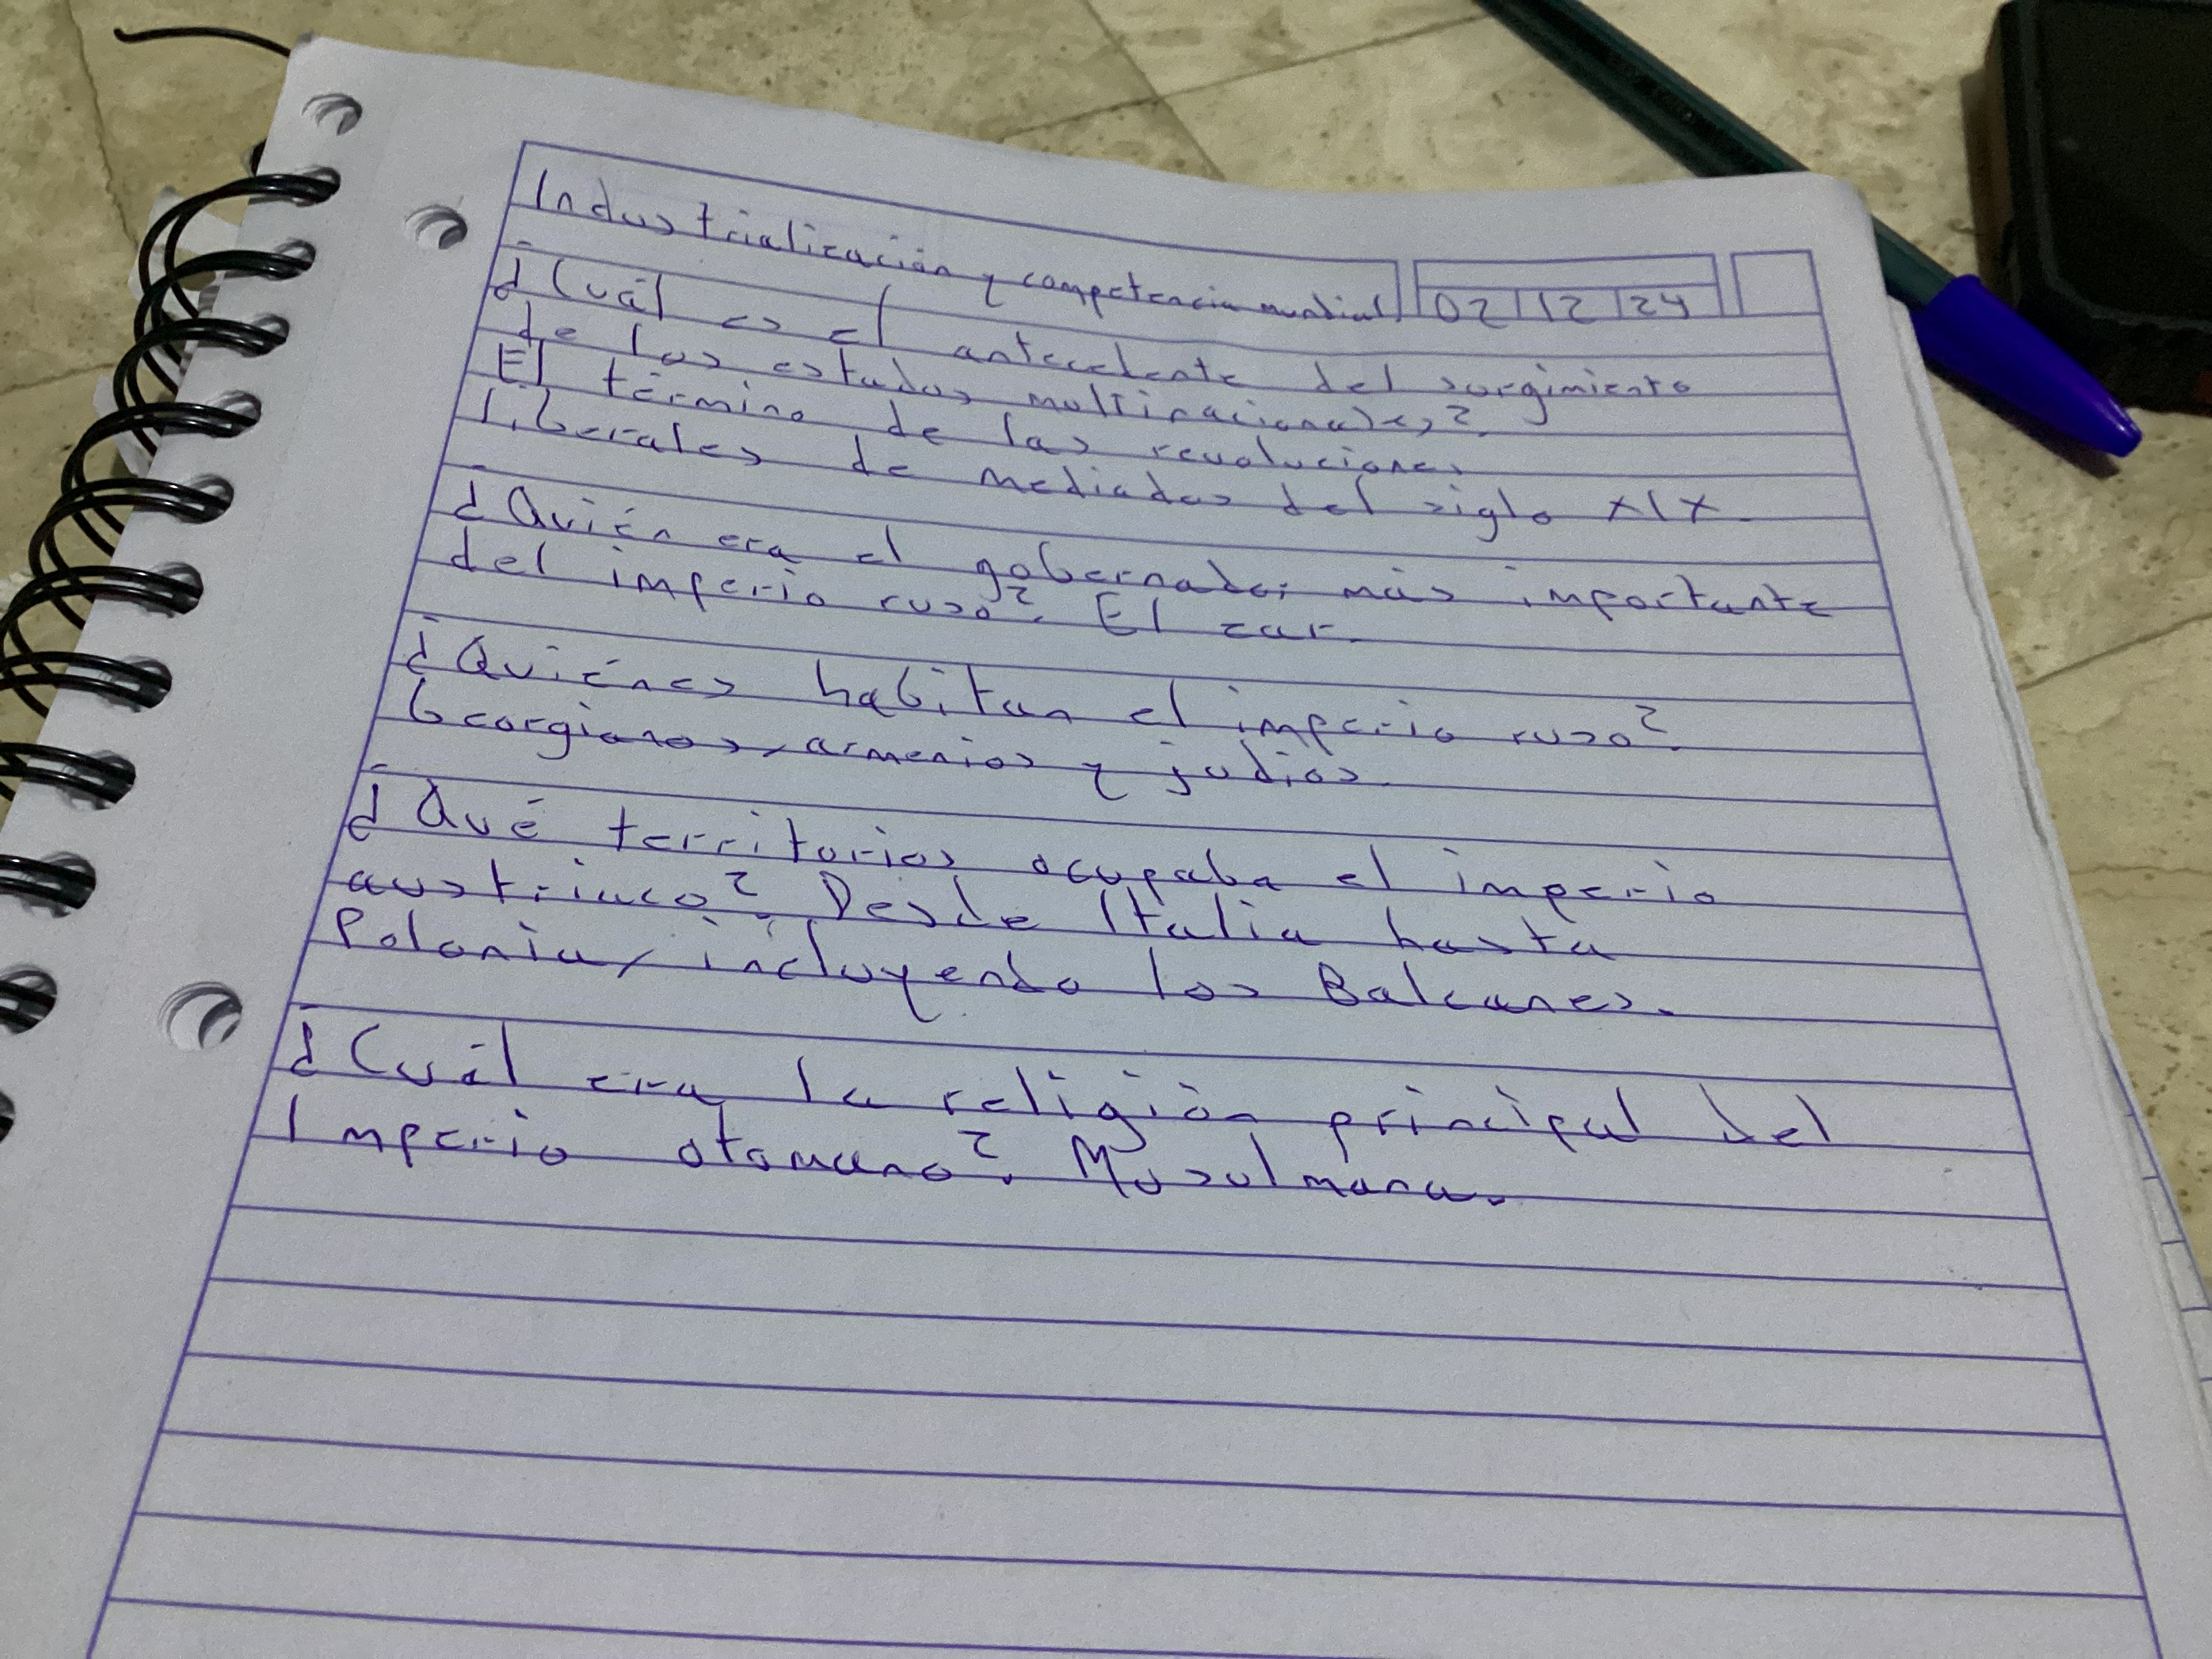 Industrialización y competencia mundial 02 12 24
¿Cuál es el antecedente del surgimiento
de los estados multinacionales?
El término de las revoluciones
liberales de mediados del siglo XIX.
¿Quién era el gobernador más importante
del imperio ruso? El zar.
¿Quiénes habitan el imperio ruso?
Georgianos, armenios y judios.
¿Qué territorios ocupaba el imperio
austriaco? Desde Italia hasta
Polonia, incluyendo los Balcanes.
¿Cuál era la religión principal del
Imperio otomano? Musulmana.